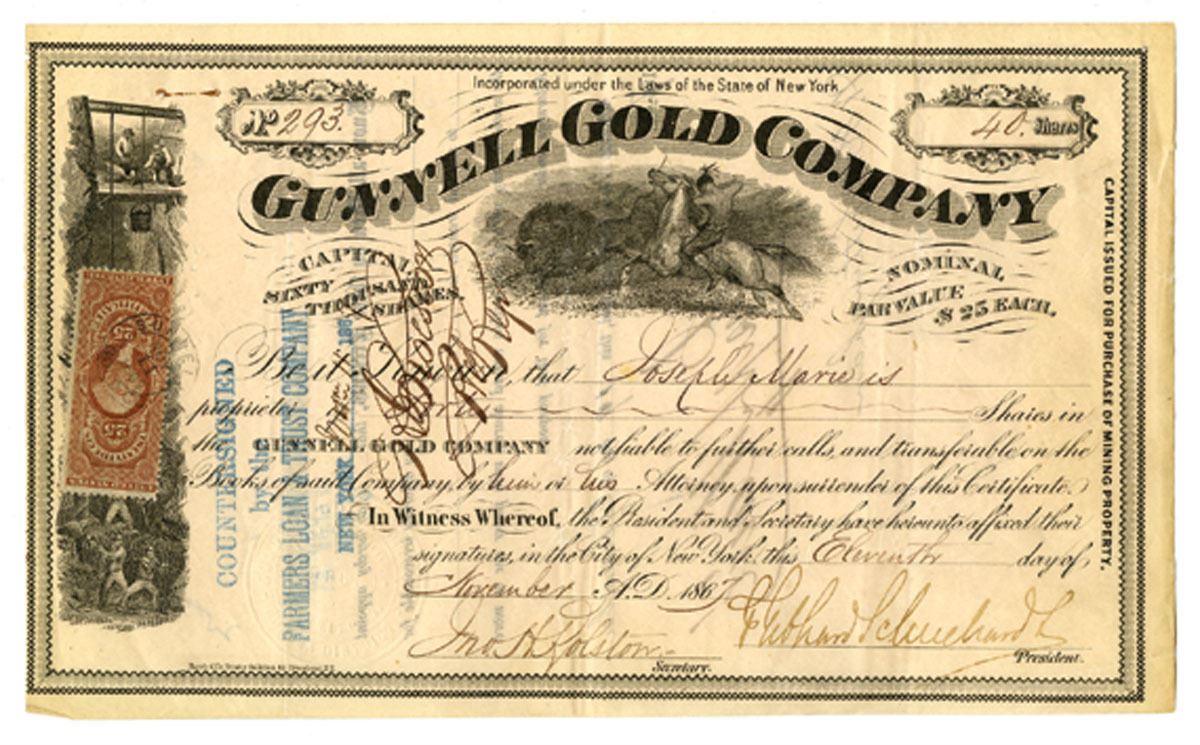 Incorporated under the Laws of the State of New York
No 293.
40. Shares
GUNNELL GOLD COMPANY
CAPITAL
SIXTY THOUSAND SHARES.
NOMINAL
PAR VALUE $25 EACH.
Be it Known, that Joseph Marie is
proprietor Shares in
the GUNNELL GOLD COMPANY not liable to further calls, and transferable on the
Books of said Company, by him or his Attorney, upon surrender of this Certificate.
In Witness Whereof, the President and Secretary have hereunto affixed their
signatures, in the City of New York, this Eleventh day of
November A.D. 1867
Secretary.
President.
CAPITAL ISSUED FOR PURCHASE OF MINING PROPERTY.
COUNTERSIGNED
by the
FARMERS LOAN & TRUST COMPANY
NEW YORK 186
25
25